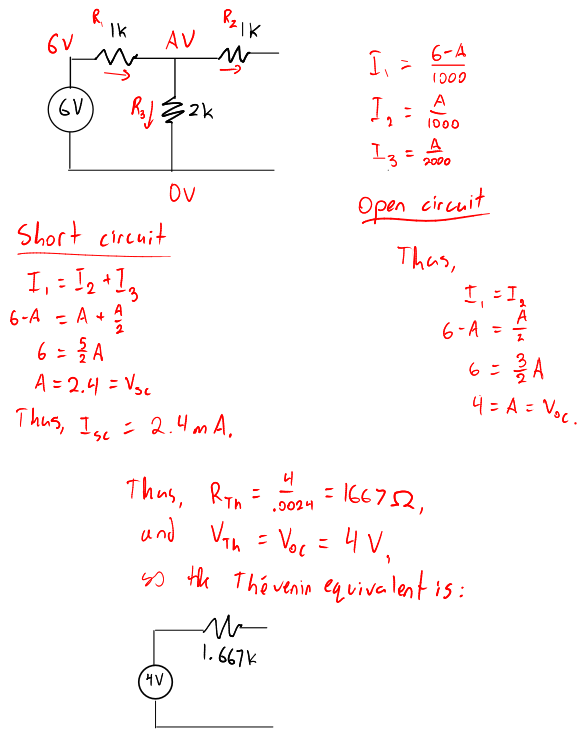 R₁ 1k
R₂ 1k
6V
AV
6V
R₃
2k
0V
I₁ = 6-A/1000
I₂ = A/1000
I₃ = A/2000
Short circuit
I₁ = I₂ + I₃
6-A = A + A/2
6 = 5/2 A
A = 2.4 = Vsc
Thus, Isc = 2.4 mA.
Open circuit
Thus,
I₁ = I₂
6-A = A/2
6 = 3/2 A
4 = A = Voc.
Thus, RTh = 4/.0024 = 1667 Ω,
and VTh = Voc = 4 V,
so the Thévenin equivalent is:
1.667k
4V